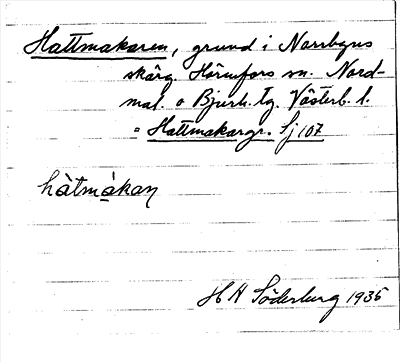 Hattmakaren, grund i Norrbyns
skärg. Hörnefors sn. Nord-
mal. o Bjurh. tg. Västerb. l.
= Hattmakargr. Sj 107
hàtmákaṇ
H H Söderburg 1935